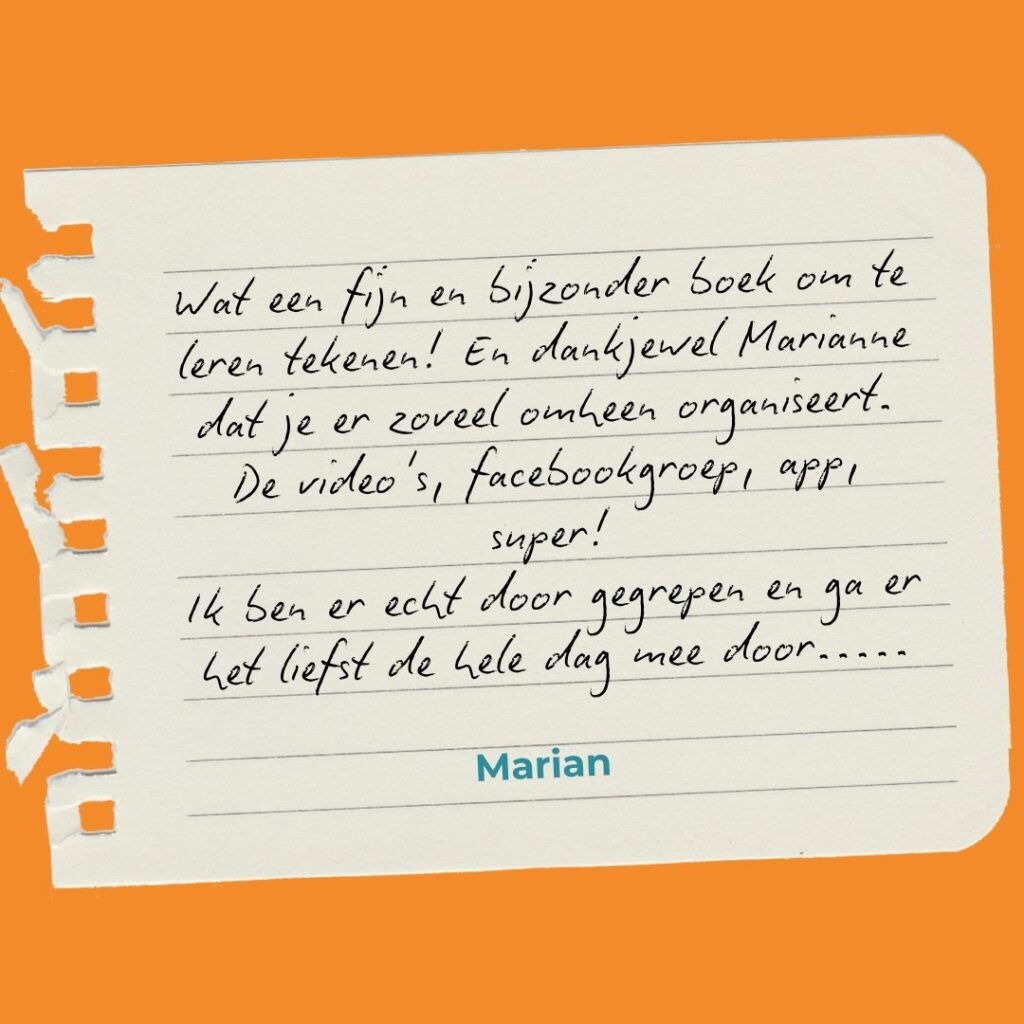 Wat een fijn en bijzonder boek om te
leren tekenen! En dankjewel Marianne
dat je er zoveel omheen organiseert.
De video's, facebookgroep, app,
super!
Ik ben er echt door gegrepen en ga er
het liefst de hele dag mee door.....
Marian